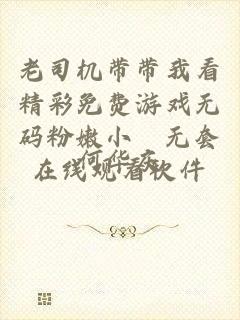 老司机带带我看
精彩免费游戏无
码粉嫩小 无套
在线观看软件
何华